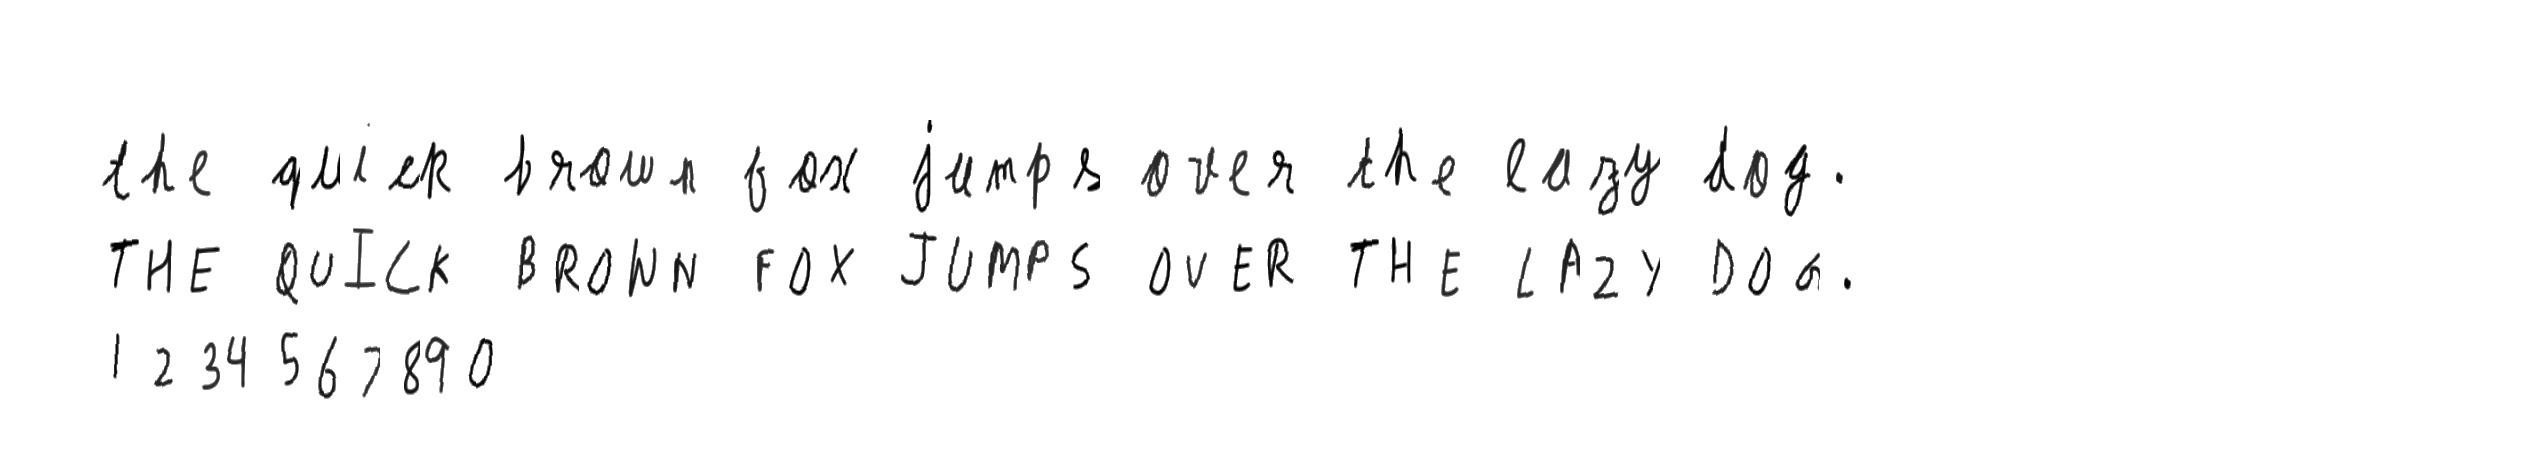 the quick brown fox jumps over the lazy dog.
THE QUICK BROWN FOX JUMPS OVER THE LAZY DOG.
1234567890